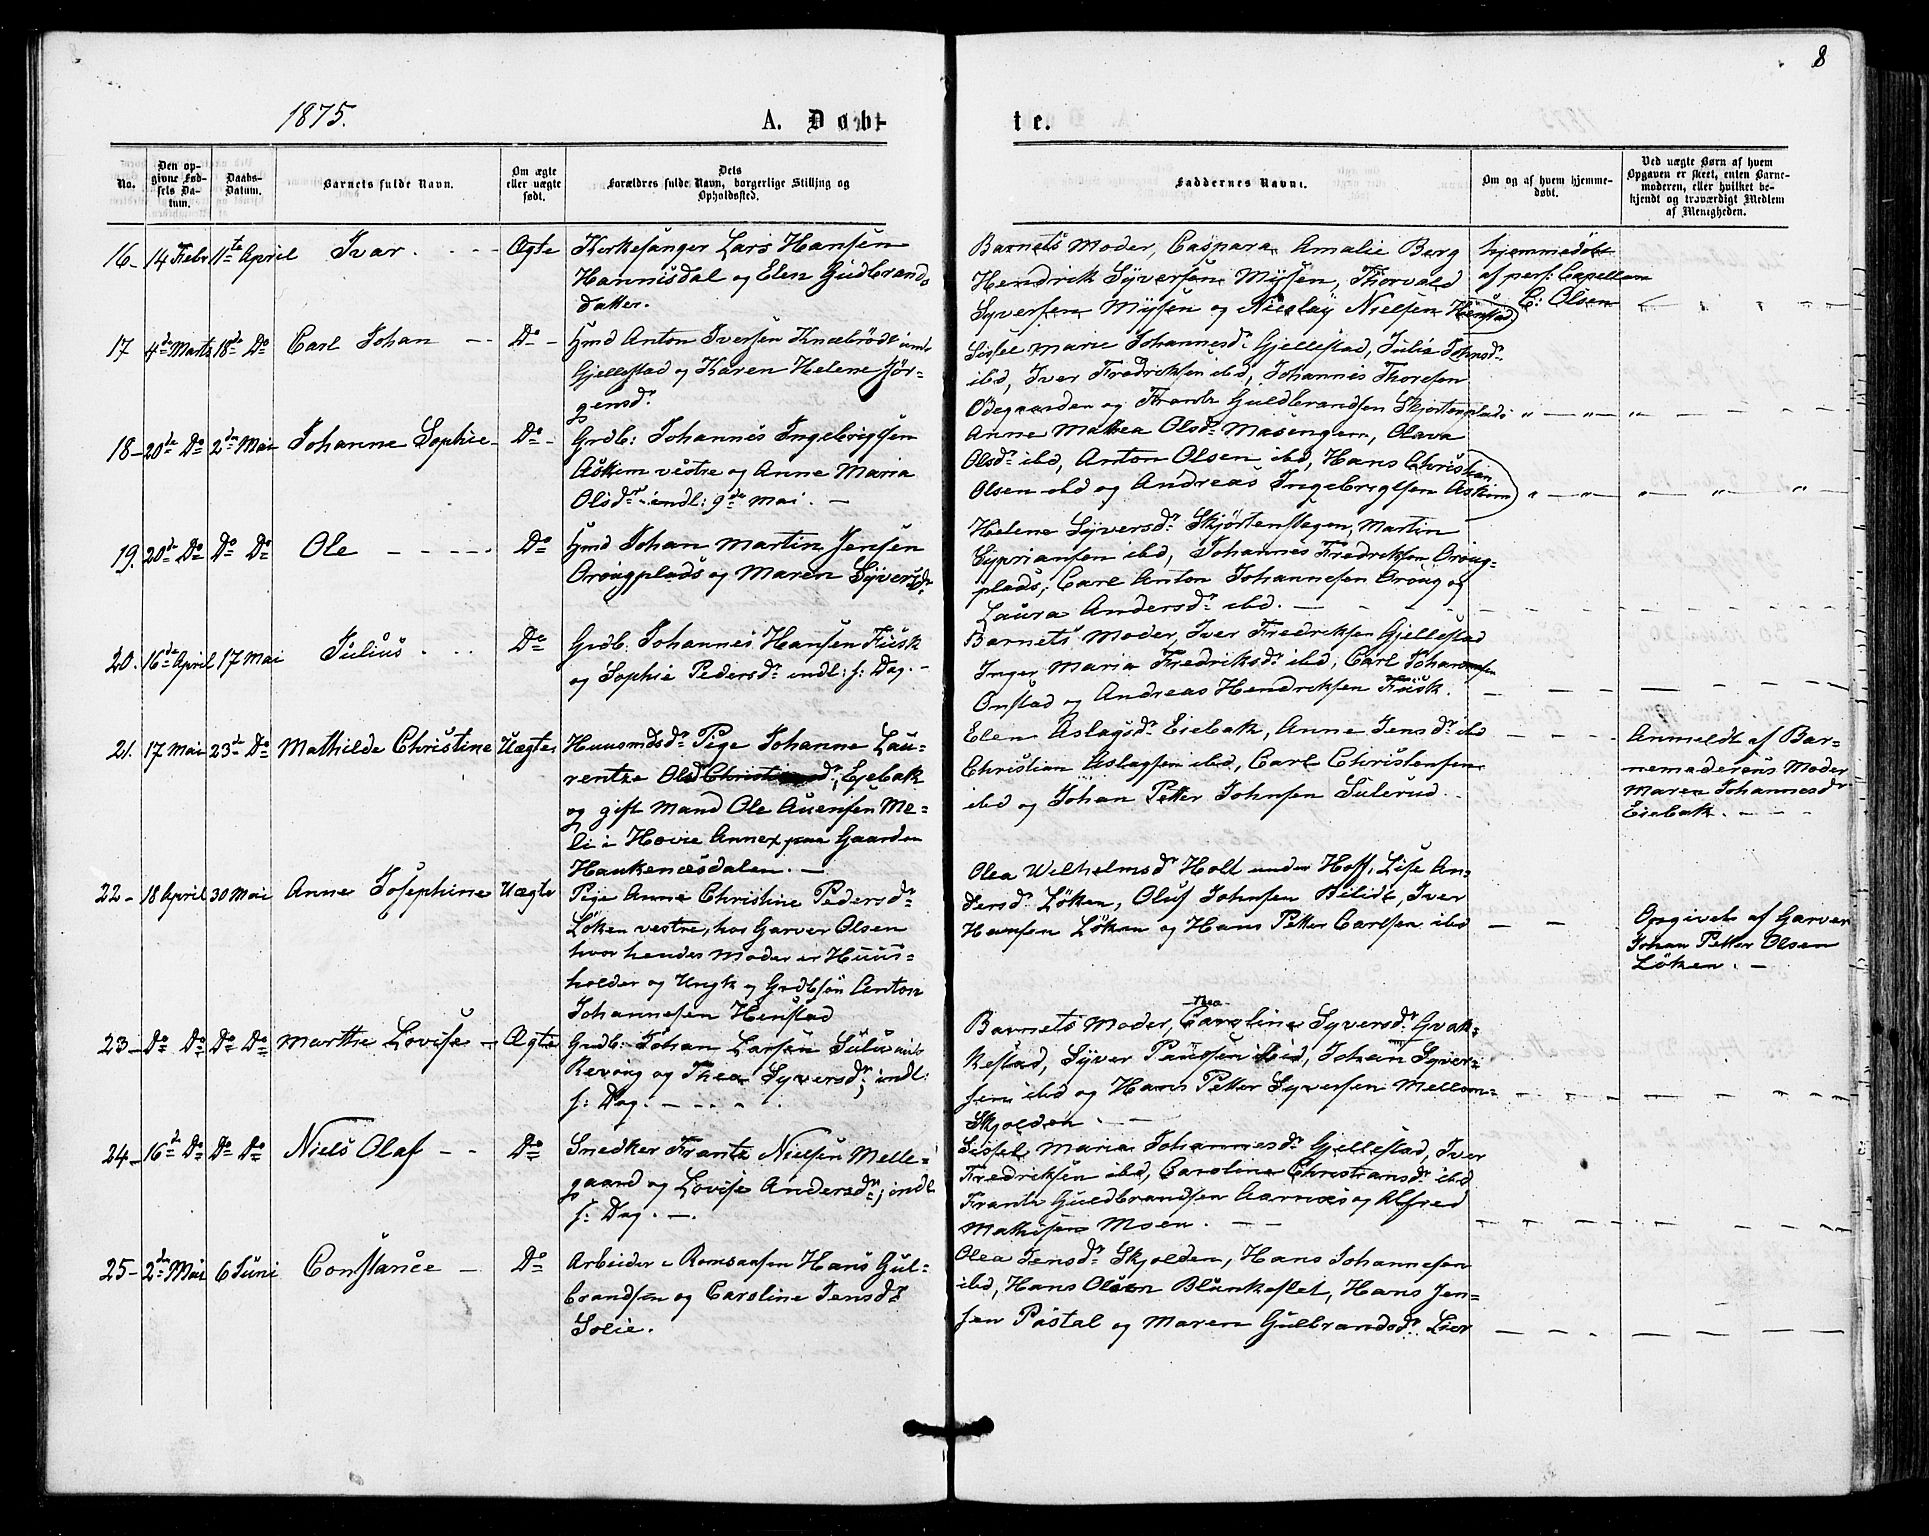 8
1875.
A. Døb-
te.
No.
Den op-
givne Fød-
sels Da-
tum.
Daabs-
Datum.
Barnets fulde Navn.
Om ægte
eller uægte
født.
Dets
Forældres fulde Navn, borgerlige Stilling og
Opholdssted.
Faddernes Navne.
Om og af hvem hjemme-
døbt.
Ved uægte Børn af hvem
Opgaven er skeet, enten Barne-
moderen, eller hvilket be-
kjendt og troværdigt Medlem
af Menigheden.
16 14 Febr 11te April Ivar. Ægte
Kirkesanger Lars Hansen
Hannisdal og Elen Gudbrands
datter.
Barnets Moder, Caspara Amalie Berg
Hendrik Syversen Mysen, Thorvald
Syversen Mysen og Nicolay Nielsen Henstad
hjemmedøbt
af pers: Capellan
C: Olsen
17 4de Marts 18de Do Carl Johan Do
Hmd Anton Iversen Kneebrödt und
Gjellestad og Karen Helene Jör-
gensd.
Sissel Marie Johannesdr Gjellestad, Julie Johnsdr
ibd, Iver Fredriksen ibd, Johannes Thoresen
Ödegaarden og Frantz Guldbrandsen Skjortenplads
18 20de Do 2den Mai Johanne Sophie Do
Grdb: Johannes Ingebrigtsen
Askim vestre og Anne Maria
Olsdr indl: 9de Mai.
Anne Mathea Olsdr Masengen, Olava
Olsdr ibd, Anton Olsen ibd, Hans Christian
Olsen ibd og Andreas Ingebrigtsen Askim
19. 20de Do Do Do Ole Do
Hmd Johan Martin Jensen
Oraugplads og Maren Syversdr
Helene Syversdr Skjörtenstegen, Martin
Sypriansen ibd, Johannes Fredriksen Oraug-
plads, Carl Anton Johannesen Oraug og
Laura Andersdr ibd.
20. 16de April 17 Mai Julius Do
Grdb. Johannes Hansen Fusk
og Sophie Pedersdr indl: s: Dag.
Barnets Moder, Iver Fredriksen Gjellestad
Inger Maria Fredriksdr ibd, Carl Johannesen
Onstad og Andreas Hendriksen Fusk.
21. 17 Mai 23de Do Mathilde Christine Uægte
Huusmdsdr Pige Johanne Lau-
rentze Olsd Ejebak
og gift Mand Ole Auensen Me-
li i Hovie Annex paa Gaarden
Haukenæsdalen.
Elen Aslagsdr Eiebak, Anne Jensdr ibd
Christian Aslagsen ibd, Carl Christensen
ibd og Johan Petter Johnsen Sulerud.
Anmeldt af Bar-
nemoderens Moder
Maren Johannesdr
Eiebak.
22 18 April 30 Mai Anne Josephine Uægte
Pige Anne Christine Pedersdr
Löken vestre, hos Garver Olsen
hvor hendes Moder er Huus-
holder og Ungk og Grdbsön Anton
Johannesen Henstad
Olea Wilhelmsdr Holt under Hoff, Lise An-
dersdr Löken, Oluf Johnsen Bilidt, Iver
Hansen Löken og Hans Petter Carlsen ibd
Opgivet af Garver
Johan Petter Olsen
Löken.
23 Do Do Do Do Marthe Lovise Ægte
Grdb: Johan Larsen Sulu
Revoug og Thea Syversdr, indl:
s: Dag.
Barnets Moder, Thea Caroline Syversdr Gvak-
kestad, Syver Paulsen ibid, Johan Syver-
sen ibd og Hans Petter Syversen Mellom-
Skjolden.
24 16de Do Do Do Niels Olaf Do
Snedker Frantz Nielsen Melle-
gaard og Lovise Andersdr, indl
s: Dag.
Sissel Maria Johannesdr Gjellestad, Iver
Fredriksen ibd, Caroline Christiansdr ibd
Frantz Guldbrandsen Aarnæs og Alfred
Mathisen Moen.
25 2den Mai 6 Juni Constance Do
Arbeider i Romsaasen Hans Gul-
brandsen og Caroline Jensdr
Solie.
Olea Jensdr Skjolden, Hans Johannesen
ibd, Hans Olsen Blunkeslet, Hans Jen-
sen Pastal og Maren Gulbrandsdr. Lier